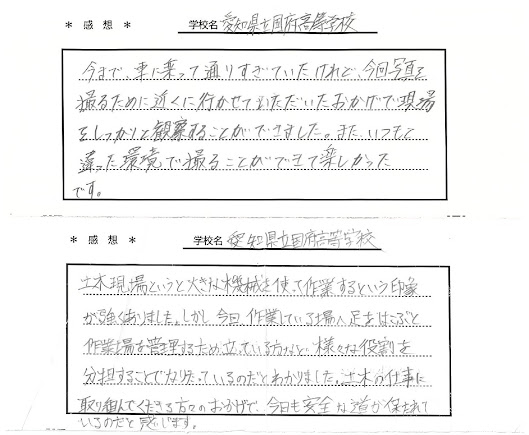 ＊ 感 想 ＊ 学校名 愛知県立国府高等学校
今まで、車に乗って通りすぎていたけれど、今回写真を
撮るために近くに行かせていただいたおかげで現場
をしっかりと観察することができました。また、いつもと
違った環境で撮ることができて楽しかった
です。
＊ 感 想 ＊ 学校名 愛知県立国府高等学校
土木現場というと大きな機械を使って作業するという印象
が強くありました。しかし、今回作業している場へ足をはこぶと
作業場を管理するため立っている方など、様々な役割を
分担することでなりたっているのだとわかりました。土木の仕事に
取り組んでくださる方々のおかげで、今日も安全な道が保たれて
いるのだと感じます。